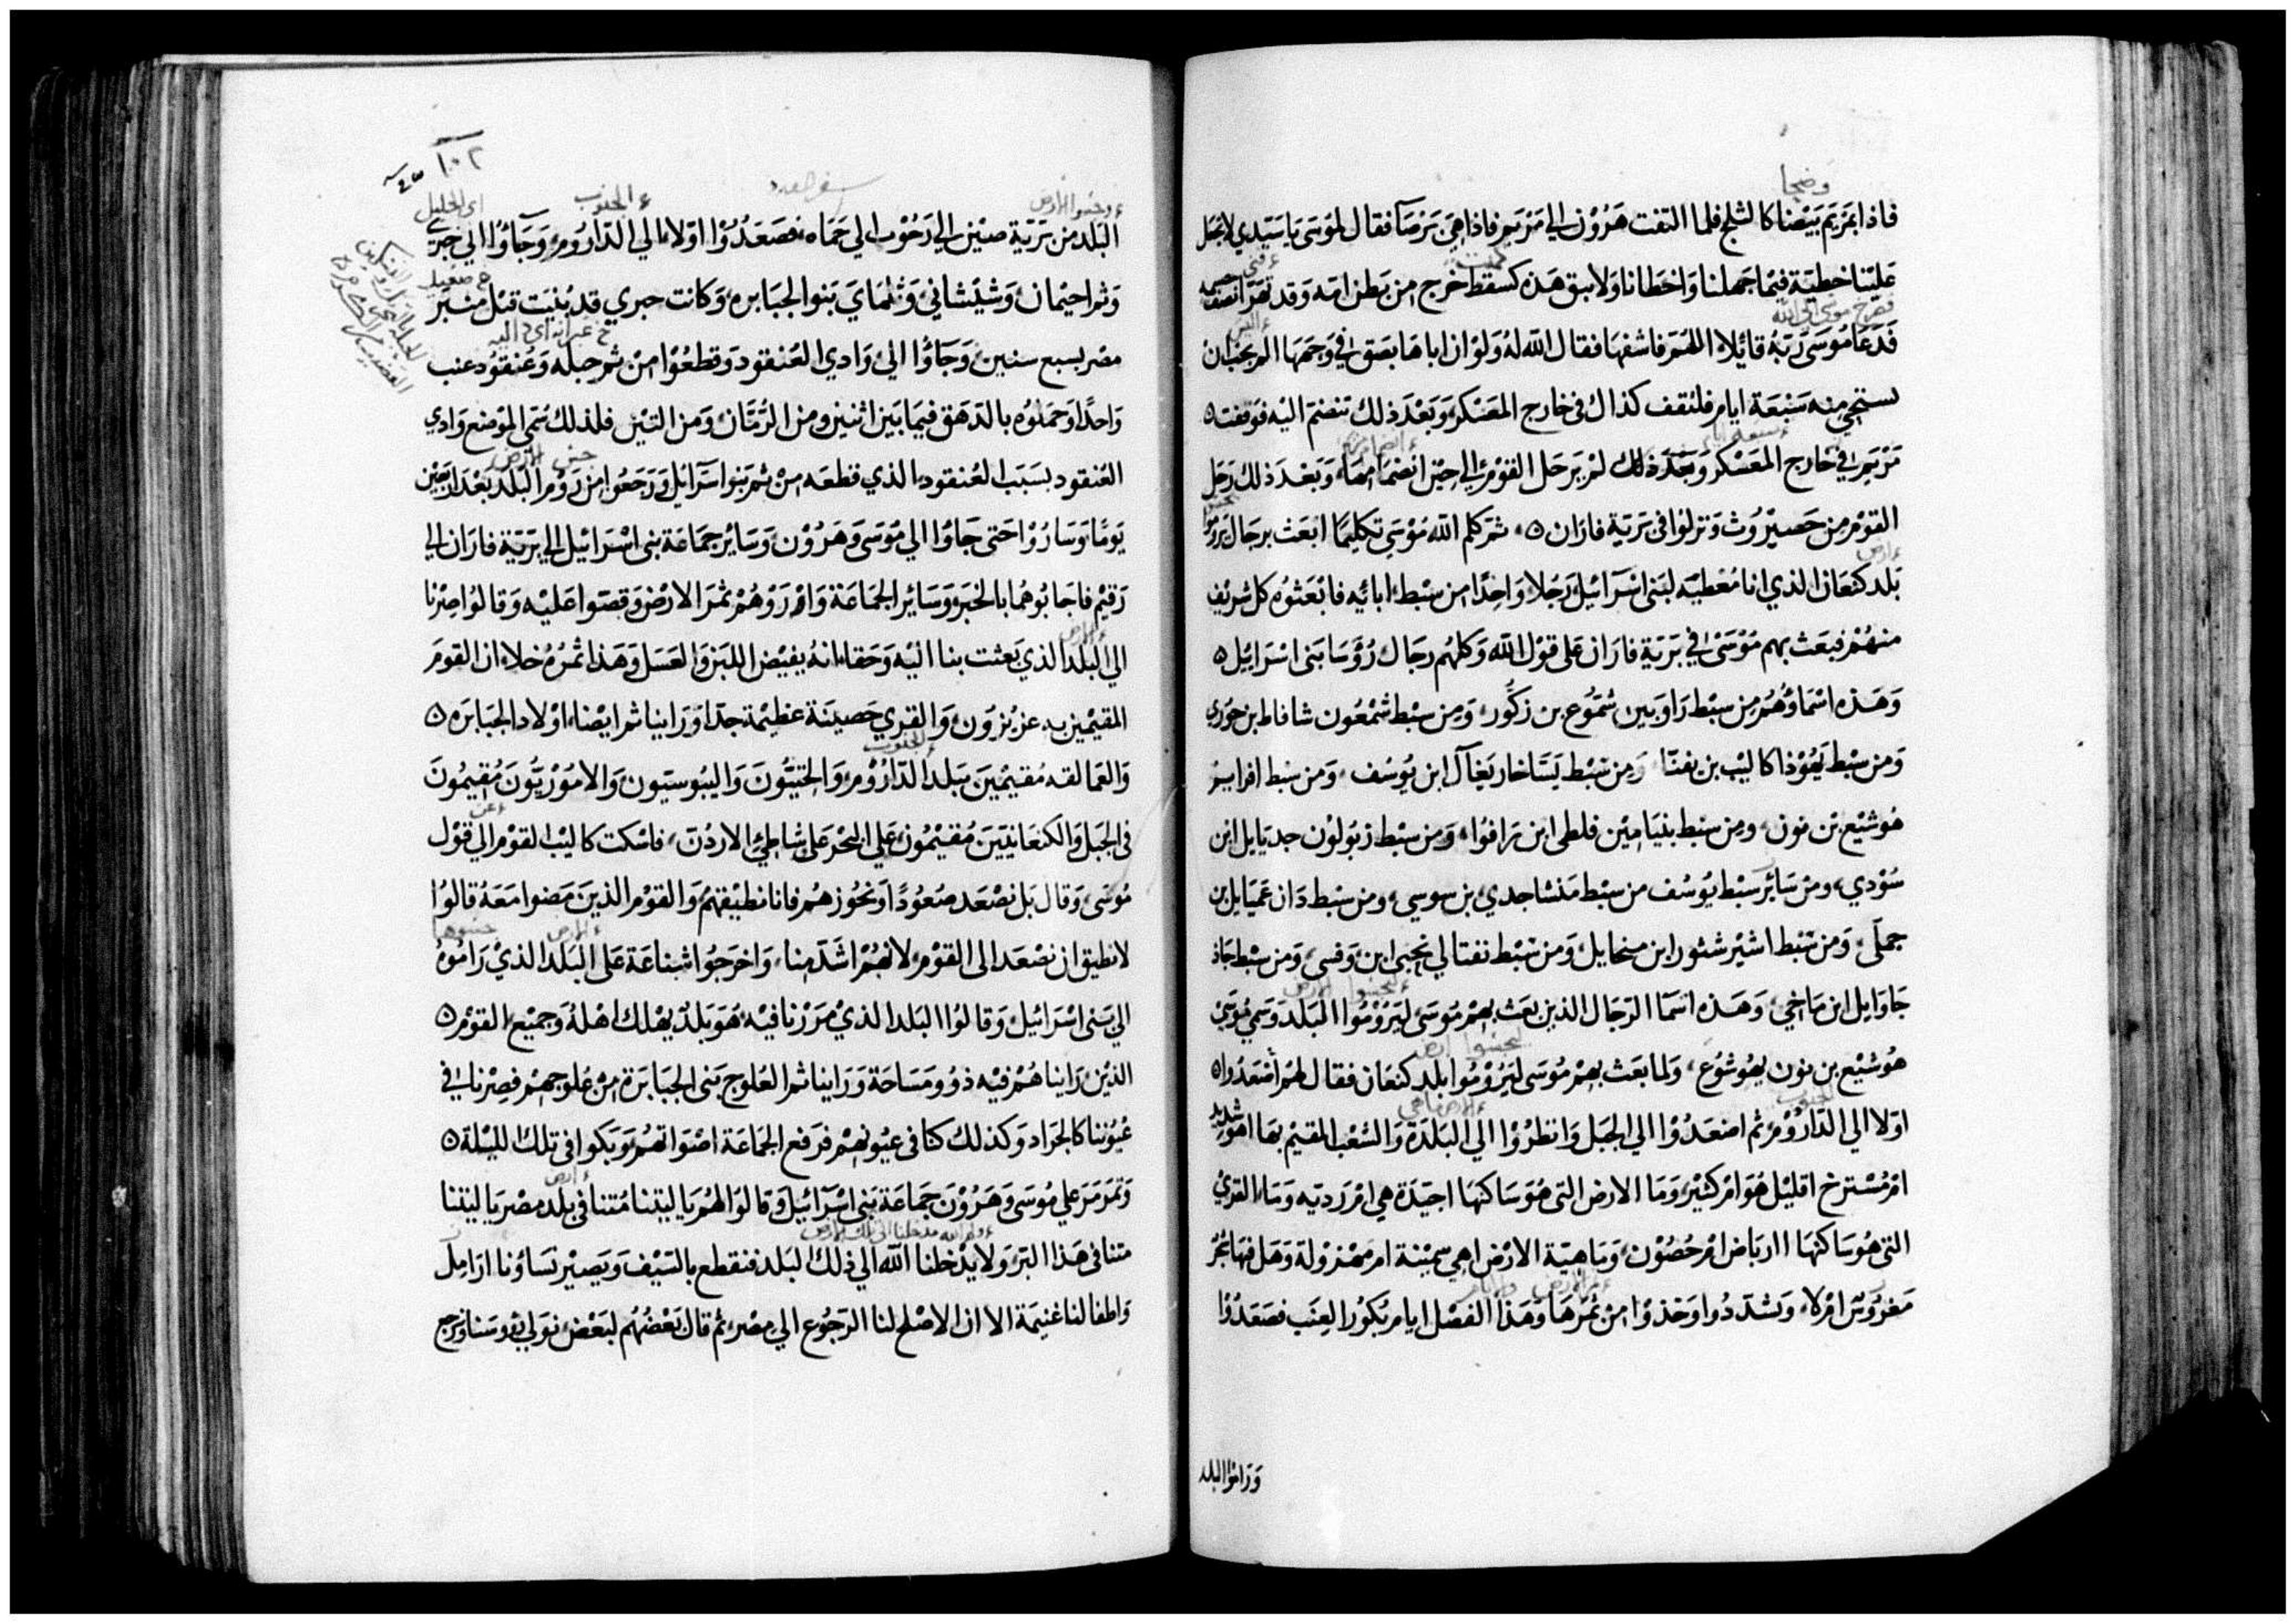 وضحا
فاذا بمريم بيضا كالثلج فلما التفت هرون الي مريم فاذا هي برصآ فقال لموسى يا سيدي لا تجعل
علينا خطية فيما جهلنا واخطانا ولا تبق هذه كسقط خرج من بطن امه وقد تهرا نصف
فدعا موسى ربه قائلا اللهم فاشفها فقال الله له ولو ان اباها بصق في وجهها الم يجب ان
تستحي منه سبعة ايام فلتقف كذاك في خارج المعسكر وبعد ذلك تنضم اليه فوقفت
مريم في خارج المعسكر وبعد ذلك لم يرحل القوم الي حين انضمامها وبعد ذلك رحل
القوم من حصيروث ونزلوا في برية فاران ثم كلم الله موسي تكليما ابعث برجال يروموا
بلد كنعان الذي انا معطيه لبني اسرائيل رجلا واحدا من سبط ابائه فابعثوه كل شريف
منهم فبعث بهم موسى في برية فاران على قول الله وكلهم رجال رؤسا بني اسرائيل
وهذه اسماؤهم من سبط راوبين شموع بن زكور ومن سبط شمعون شافاط بن حوري
ومن سبط يهوذا كاليب بن يفنا ومن سبط يساخار يغآل ابن يوسف ومن سبط افرايم
هوشيع بن نون ومن سبط بنيامين فلطي ابن رافوا ومن سبط زبولون جديايل ابن
سودي ومن سائر سبط يوسف من سبط منشا جدي بن سوسي ومن سبط دان عميايل بن
جملى ومن سبط اشير شثور ابن ميخايل ومن سبط نفتالي نحبي ابن وفسي ومن سبط جاذ
جاوايل ابن ماخي وهذه اسما الرجال الذين بعث بهم موسى ليروموا البلد وسمي موسى
هوشيع بن نون يهوشوع ولما بعث بهم موسى ليروموا بلد كنعان فقال لهم اصعدوا
اولا الي الداروم ثم اصعدوا الي الجبل وانظروا الي البلدة والشعب المقيم بها اهو شديد
ام مسترخ اقليل هو ام كثير وما الارض التي هو ساكنها اجيدة هي ام ردية وما القري
التي هو ساكنها ارباض ام حصون وما هية الارض اهي سمينة ام مهزولة وهل فيها شجر
مغروس ام لا وتشددوا وخذوا من ثمرها وهذا الفصل ايام بكور العنب فصعدوا
وراموا البلد
١٠٢
سفر العدد
البلد من برية صين الي رحوب الي حماه فصعدوا اولا الي الداروم وجاؤا الي حبري
وثم احيمان وشيشاني وثلماي بنوا الجبابره وكانت حبري قد بنيت قبل منبر
مصر بسبع سنين وجاؤا الي وادي العنقود وقطعوا من ثم حبله وعنقود عنب
واحدا وحملوه بالدهق فيما بين اثنين ومن الرمان ومن التين فلذلك سمي الموضع وادي
العنقود بسبب العنقود الذي قطعه من ثم بنوا اسرآئيل ورجعوا من روم البلد بعد اربعين
يوما وساروا حتى جاؤا الي موسى وهرون وسائر جماعة بني اسرائيل الي برية فاران الي
رقيم فاجابوهما بالخبر وسائر الجماعة واروهم ثمر الارض وقصوا عليه وقالوا صرنا
الي البلد الذي بعثت بنا اليه وحقا انه يفيض اللبن والعسل وهذا ثمره خلا ان القوم
المقيمين به عزيزون والقري حصينة عظيمة جدا وراينا ثم ايضا اولاد الجبابره
والعمالقه مقيمين ببلد الداروم والحتيون واليبوسيون والاموريون مقيمون
في الجبل والكنعانيين مقيمون علي البحر على شاطئ الاردن فاسكت كاليب القوم الي قول
موسى وقال بل نصعد صعودا ونحوزهم فانا نطيقهم والقوم الذين مضوا معه قالوا
لا نطيق ان نصعد الى القوم لانهم اشد منا واخرجوا شناعة على البلد الذي راموه
الي بني اسرائيل وقالوا البلد الذي مررنا فيه هو بلد يهلك اهله وجميع القوم
الذين راينا هم فيه ذوو مساحة وراينا ثم العلوج بني الجبابرة من علوجهم فصرنا في
عيوننا كالجراد وكذلك كنا في عيونهم فرفع الجماعة اصواتهم وبكوا في تلك الليلة
وتمرمر علي موسى وهرون جماعة بني اسرآئيل وقالوا لهم يا ليتنا متنا في بلد مصر يا ليتنا
متنا في هذا البر ولا يدخلنا الله الي ذلك البلد فنقطع بالسيف ويصير نساؤنا ارامل
واطفالنا غنيمة الا ان الاصلح لنا الرجوع الي مصر ثم قال بعضهم لبعض نولي رؤسنا ونرجع